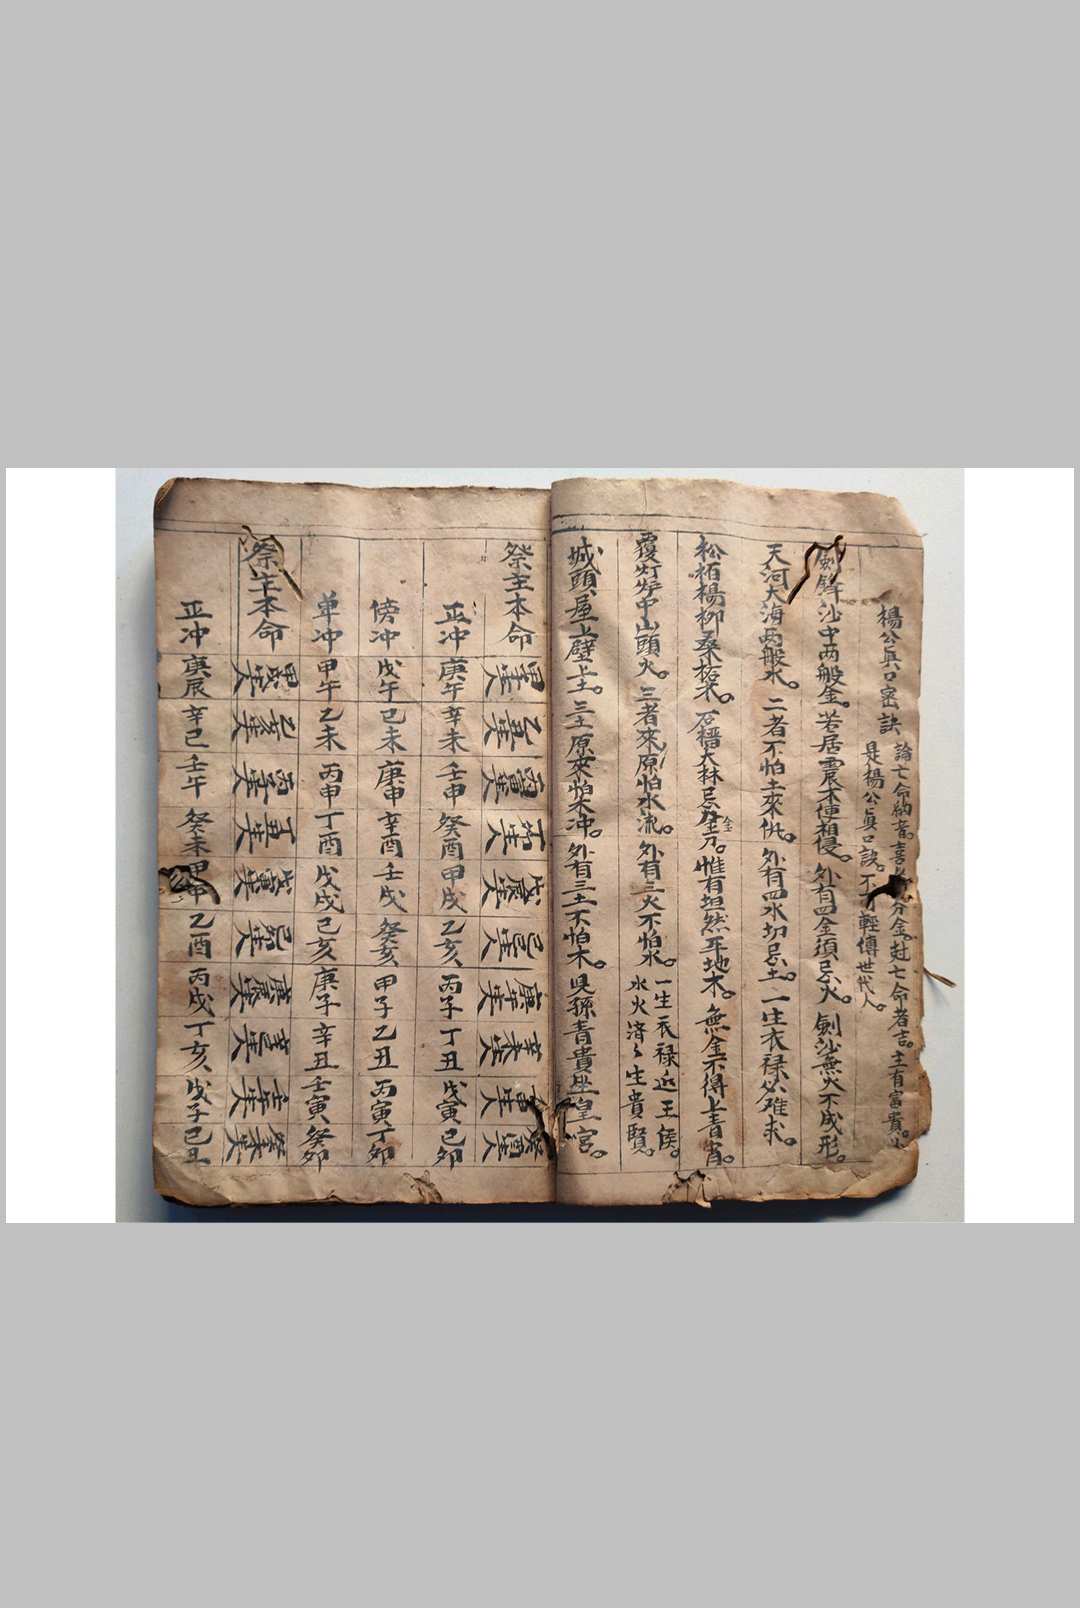 楊公眞口密訣
論亡命納音喜分金尅亡命者吉。主有富貴。
是楊公眞口訣。不輕傳世代人。
劍鋒沙中両般金。若居震木便相侵。外有四金須忌火。劍沙無火不成形。
天河大海两般水。二者不怕土來仇。外有四水切忌土。一生衣禄必难求。
松栢楊柳桑柘木。石榴大林忌金刀。惟有坦然平地木。無金不得上青霄。
覆灯炉中山頭火。三者來原怕水流。外有三火不怕水。一生衣禄近王侯。
水火済々生貴賢。
城頭屋上壁上土。三土原來怕木冲。外有三土不怕木。児孫青貴坐皇宮。
祭主本命 甲子生人 乙丑生人 丙寅生人 丁卯生人 戊辰生人 己巳生人 庚午生人 辛未生人 壬申生人 癸酉生人
正冲 庚午 辛未 壬申 癸酉 甲戌 乙亥 丙子 丁丑 戊寅 己卯
傍冲 戊午 己未 庚申 辛酉 壬戌 癸亥 甲子 乙丑 丙寅 丁卯
单冲 甲午 乙未 丙申 丁酉 戊戌 己亥 庚子 辛丑 壬寅 癸卯
祭主本命 甲戌生人 乙亥生人 丙子生人 丁丑生人 戊寅生人 己卯生人 庚辰生人 辛巳生人 壬午生人 癸未生人
正冲 庚辰 辛巳 壬午 癸未 甲申 乙酉 丙戌 丁亥 戊子 己丑